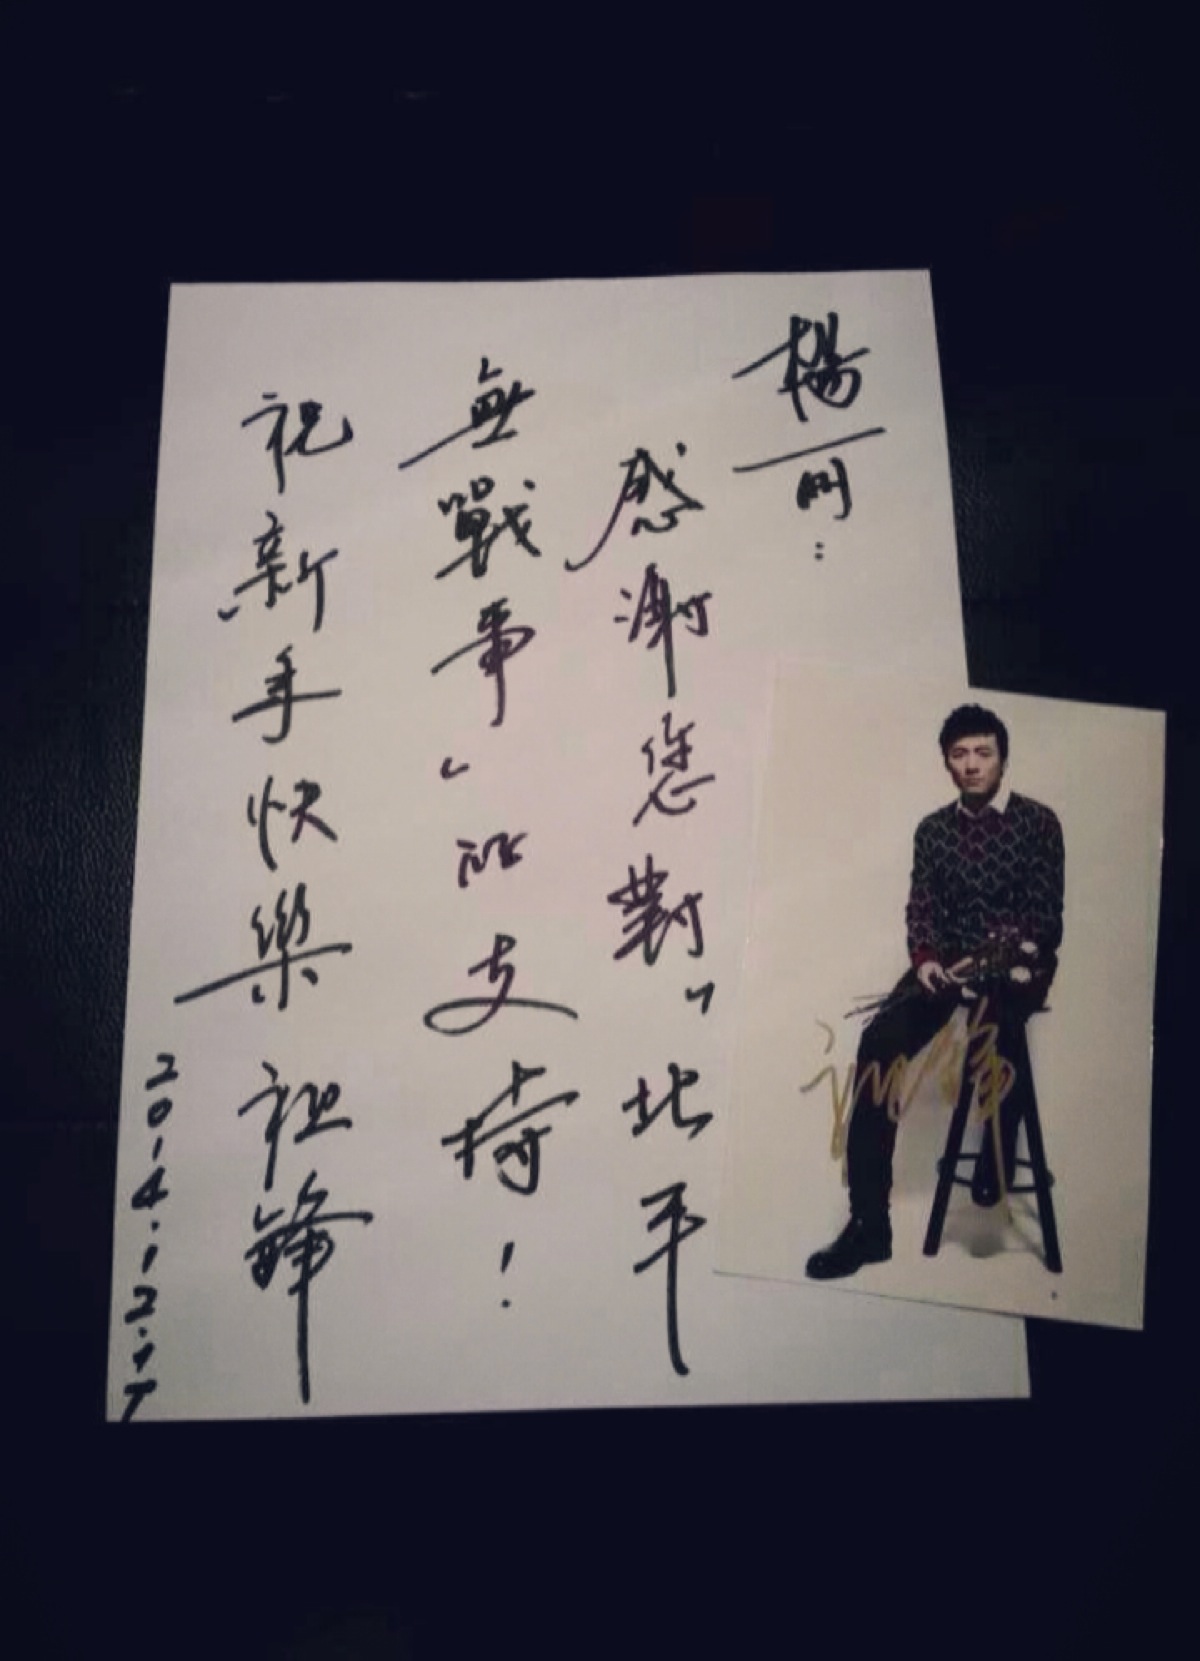 楊丽：
感謝您對“北平
無戰事”的支持！
祝新年快樂 祖鋒
2014.12.17
祖鋒